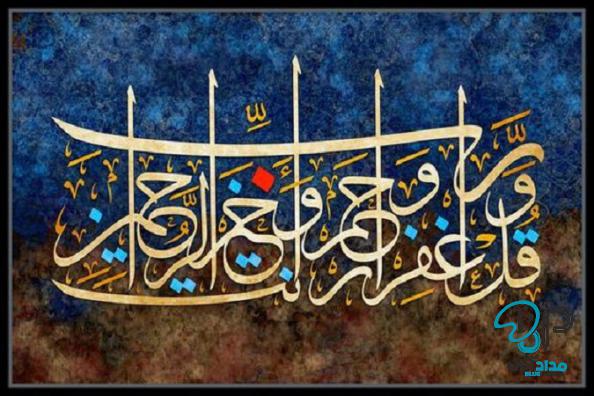 وَقُل رَّبِّ اغْفِرْ وَارْحَمْ وَأَنتَ خَيْرُ الرَّاحِمِينَ
مداد
BLUE